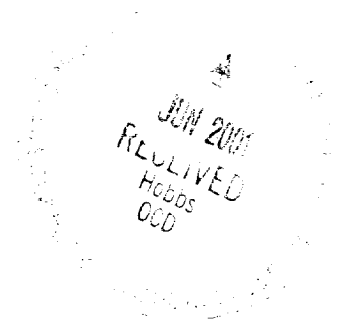 JUN 2001
RECEIVED
Hobbs
OCD